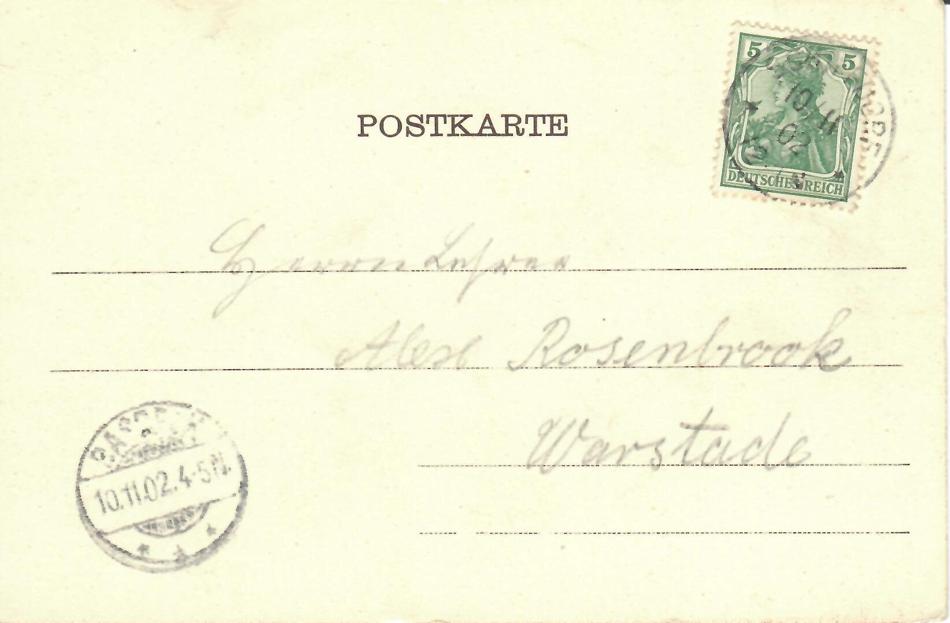 5 5
10 11
02
DEUTSCHES REICH
POSTKARTE
Herrn Lehrer
Rosenbrook
Warstade
10.11.02.4-5N.